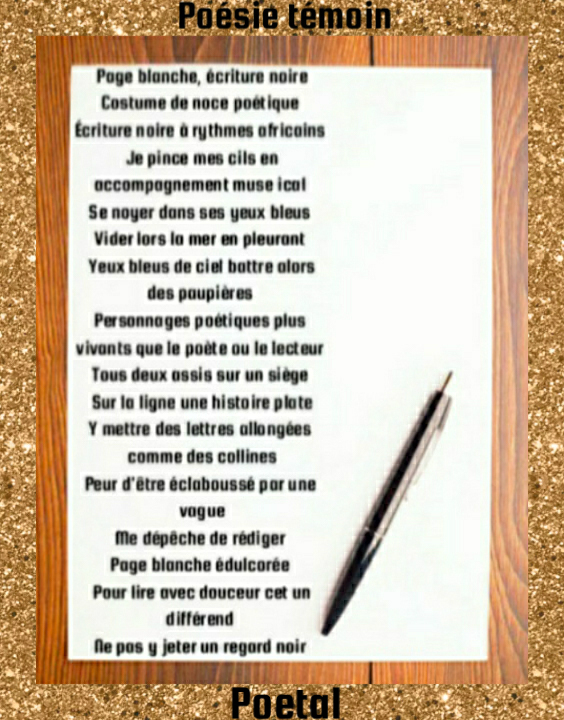 Poésie témoin
Page blanche, écriture noire
Costume de noce poétique
Écriture noire à rythmes africains
Je pince mes cils en
accompagnement muse ical
Se noyer dans ses yeux bleus
Vider lors la mer en pleurant
Yeux bleus de ciel battre alors
des paupières
Personnages poétiques plus
vivants que le poète ou le lecteur
Tous deux assis sur un siège
Sur la ligne une histoire plate
Y mettre des lettres allongées
comme des collines
Peur d'être éclaboussé par une
vague
Me dépêche de rédiger
Page blanche édulcorée
Pour lire avec douceur cet un
différend
Ne pas y jeter un regard noir
Poetal